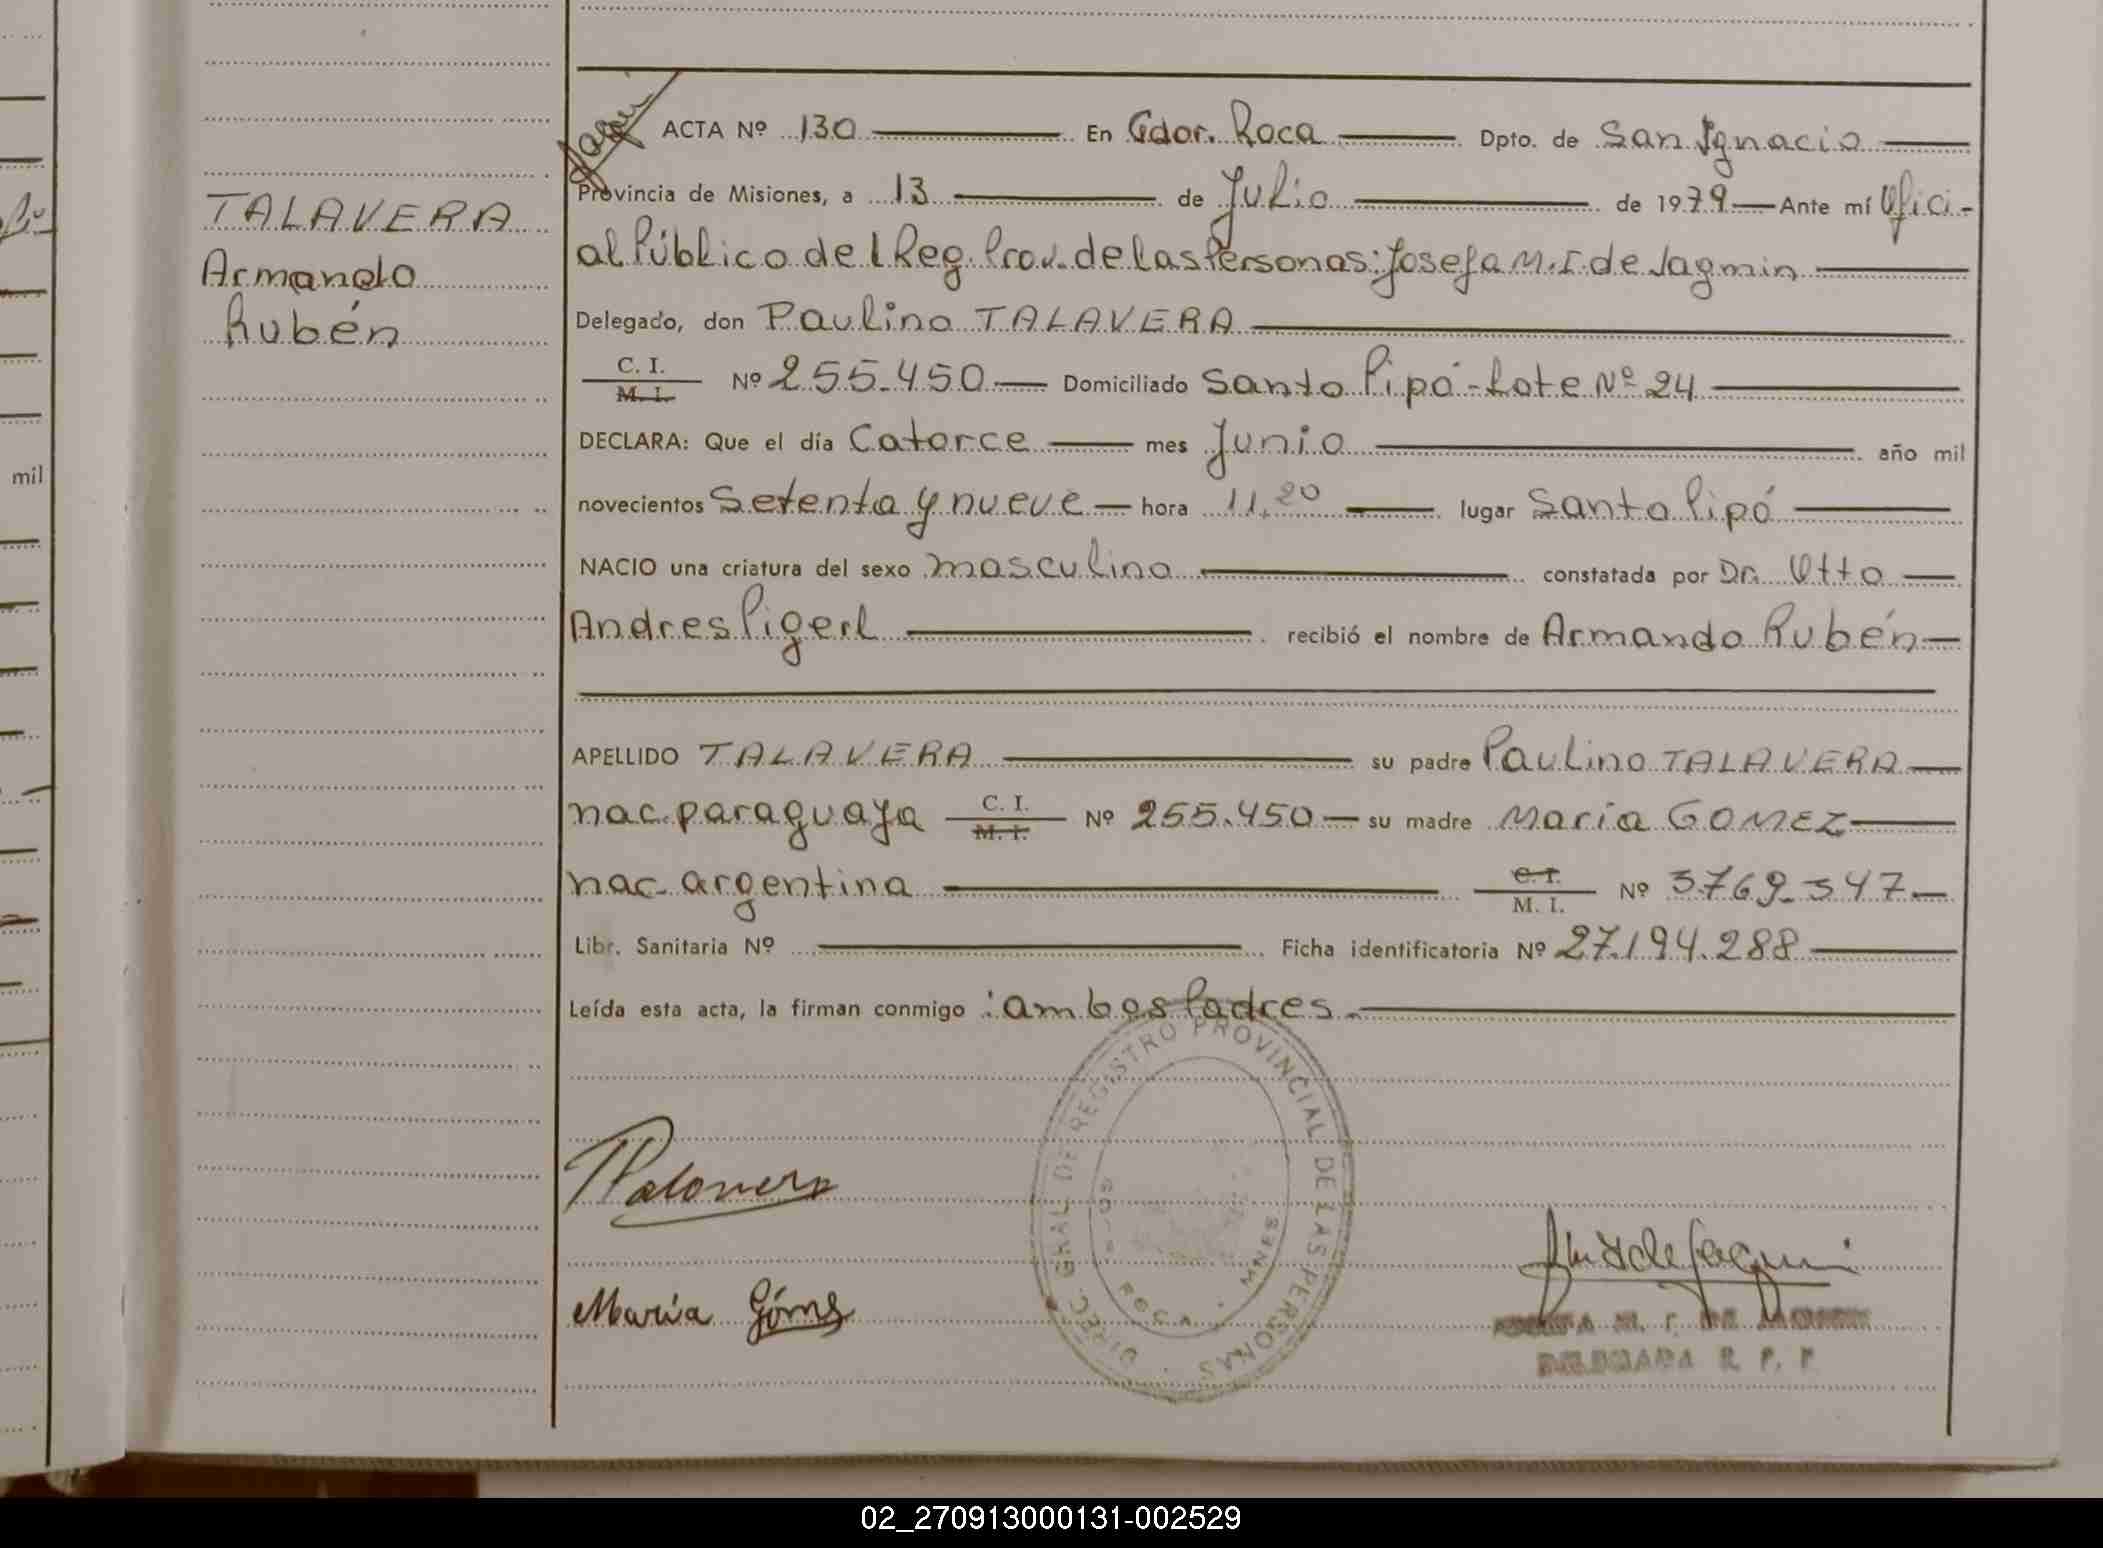 ACTA Nº 130 En Gdor. Roca Dpto. de San Ignacio
Provincia de Misiones, a 13 de Julio de 1979 Ante mí Ofici-
al Público del Reg. Prov. de las Personas: Josefa M. I. de Jagmin
Delegado, don Paulino TALAVERA
C. I.
M. I. Nº 255.450 Domiciliado Santo Pipó - Lote Nº 24
DECLARA: Que el día Catorce mes Junio año mil
novecientos Setenta y nueve hora 11.20 lugar Santo Pipó
NACIO una criatura del sexo masculino constatada por Dr. Otto
Andres Pigerl recibió el nombre de Armando Rubén
APELLIDO TALAVERA su padre Paulino TALAVERA
nac. paraguaya C. I. M. I. Nº 255.450 su madre Maria GOMEZ
nac. argentina C. I. M. I. Nº 3.769.347
Libr. Sanitaria Nº Ficha identificatoria Nº 27.194.288
Leída esta acta, la firman conmigo: ambos Padres.
TALAVERA
Armando
Rubén
mil
DIREC. GRAL. DE REGISTRO PROVINCIAL DE LAS PERSONAS
ROCA
María
M. I. DE
DELEGADA R. P. P.
02_270913000131-002529